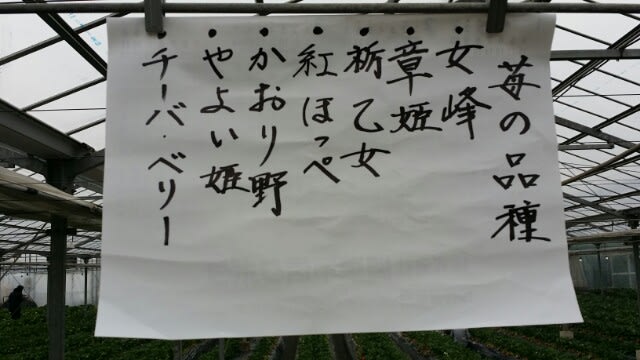 苺の品種
・女峰
・章姫
・栃乙女
・紅ほっぺ
・かおり野
・やよい姫
・チーバ・ベリー